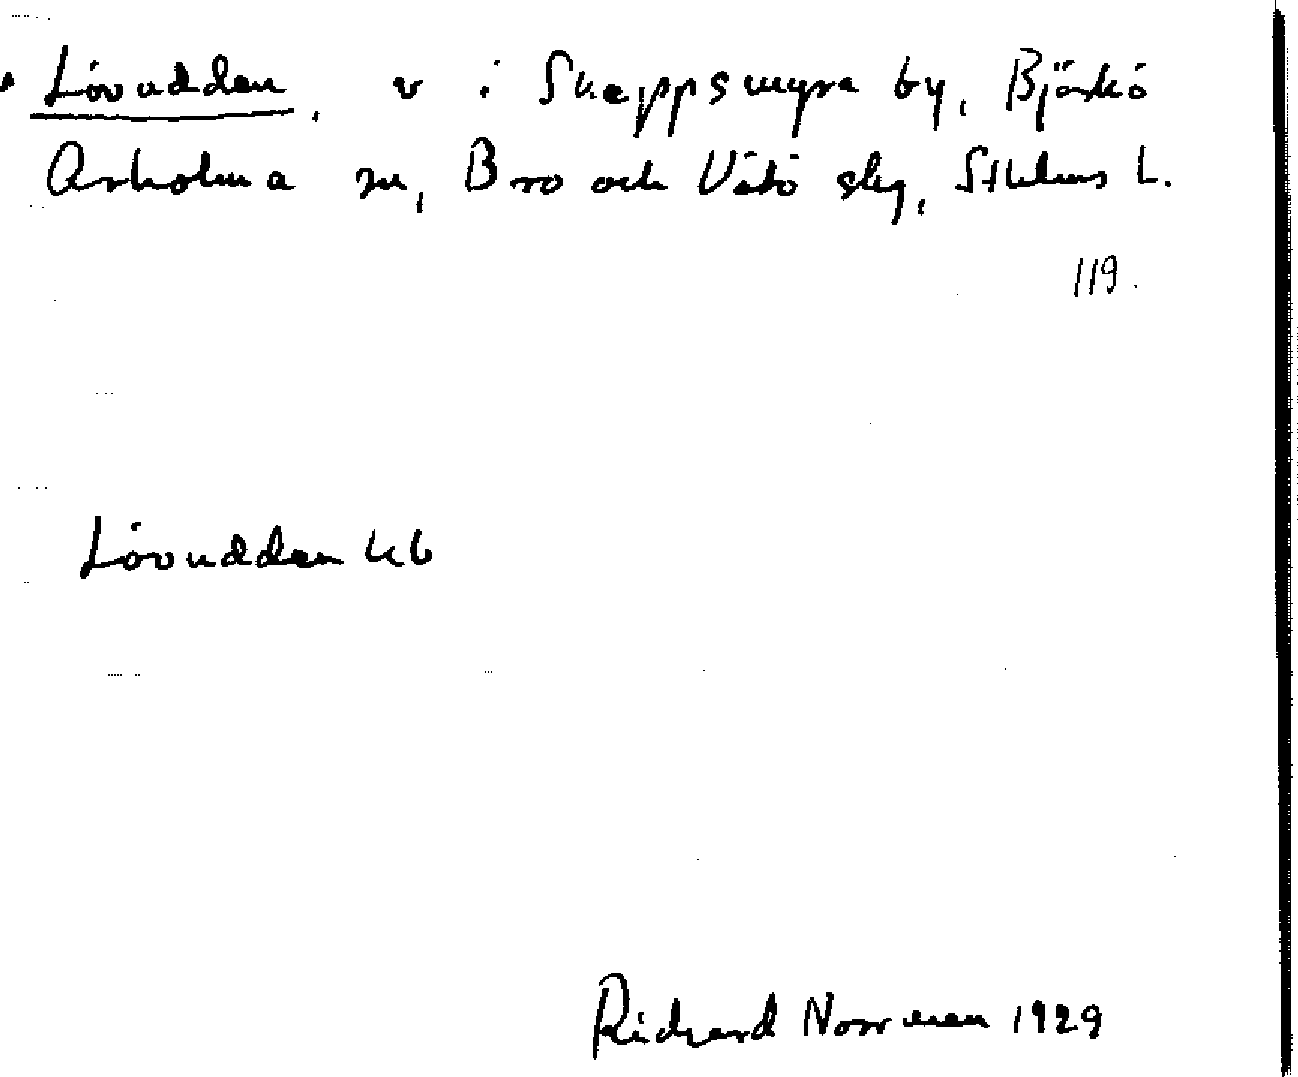 Lövudden, v i Skeppsmyra by, Björkö
Arholma sn, Bro och Vätö skg, Sthlms L.
119.
Lövudden kb
Richard Norrman 1929